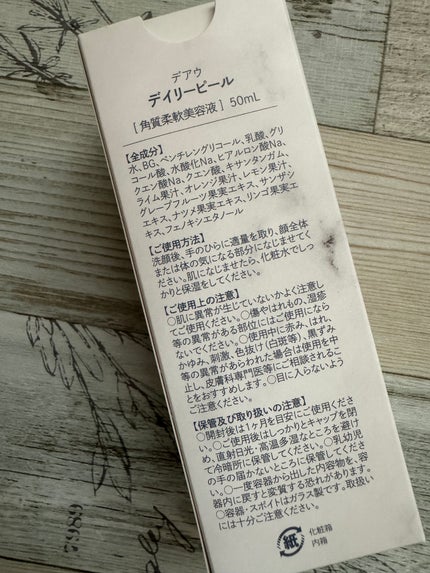 デアウ
デイリーピール
[角質柔軟美容液] 50mL
【全成分】
水、BG、ペンチレングリコール、乳酸、グリ
コール酸、水酸化Na、ヒアルロン酸Na、
クエン酸Na、クエン酸、キサンタンガム、
ライム果汁、オレンジ果汁、レモン果汁、
グレープフルーツ果実エキス、サンザシ
エキス、ナツメ果実エキス、リンゴ果実エ
キス、フェノキシエタノール
【ご使用方法】
洗顔後、手のひらに適量を取り、顔全体
または体の気になる部分になじませてく
ださい。肌になじませたら、化粧水でしっ
かりと保湿をしてください。
【ご使用上の注意】
○肌に異常が生じていないかよく注意し
てご使用ください。○傷やはれもの、湿疹
等の異常がある部位にはご使用になら
ないでください。○使用中に赤み、はれ、
かゆみ、刺激、色抜け(白斑等)、黒ずみ
等の異常があらわれた場合は使用を中
止し、皮膚科専門医等にご相談されるこ
とをおすすめします。○目に入らないよう
ご注意ください。
【保管及び取り扱いの注意】
○開封後は1ヶ月を目安にご使用くださ
い。○ご使用後はしっかりとキャップを閉
め、直射日光・高温多湿なところを避け
て冷暗所に保管してください。○乳幼児
の手の届かないところに保管してくださ
い。○一度容器から出た内容物を、容
器内に戻すと変質する恐れがあります。
○容器・スポイトはガラス製です。取扱い
には十分ご注意ください。
紙
化粧箱
内箱
7989